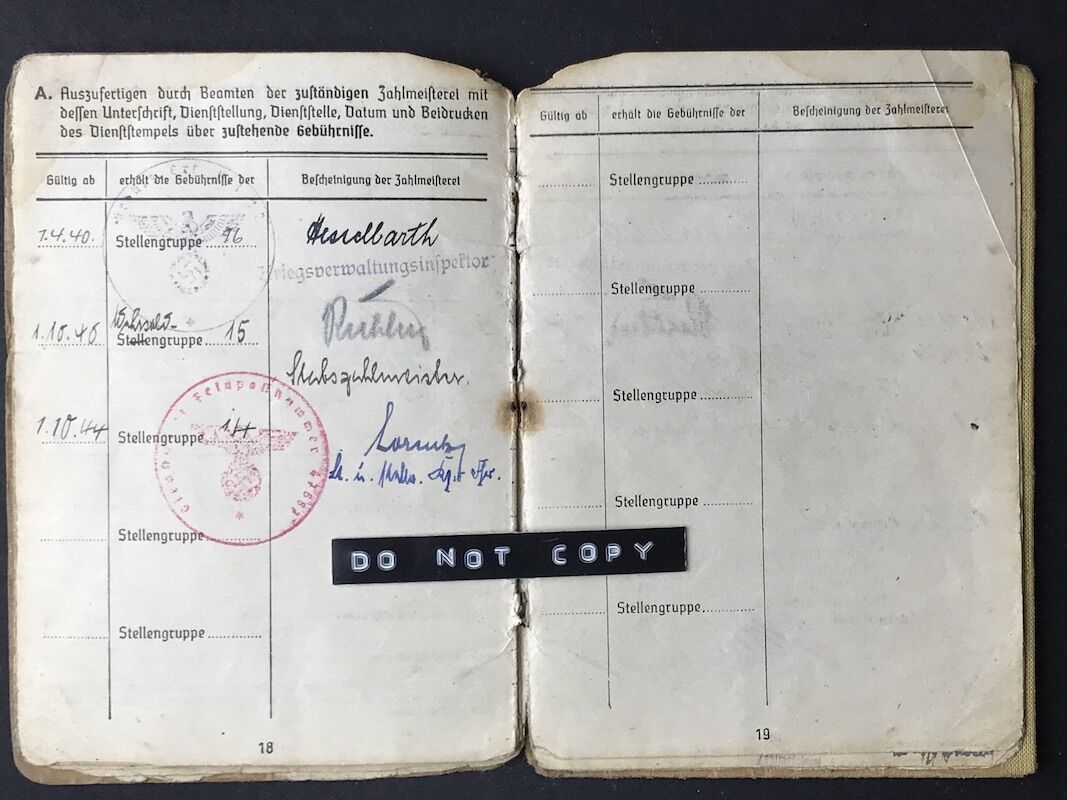 A. Auszufertigen durch Beamten der zuständigen Zahlmeisterei mit
dessen Unterschrift, Dienststellung, Dienststelle, Datum und Beidrucken
des Dienststempels über zustehende Gebührnisse.
Gültig ab erhält die Gebührnisse der Bescheinigung der Zahlmeisterei
1.4.40. Stellengruppe 16 Hesselbarth
Kriegsverwaltungsinspektor
Wehrsold-
1.10.40 Stellengruppe 15
Stabszahlmeister.
1.10.44 Stellengruppe 14
Feldpostnummer
Stellengruppe
Stellengruppe
18
Gültig ab erhält die Gebührnisse der Bescheinigung der Zahlmeisterei
Stellengruppe
Stellengruppe
Stellengruppe
Stellengruppe
Stellengruppe
19
DO NOT COPY